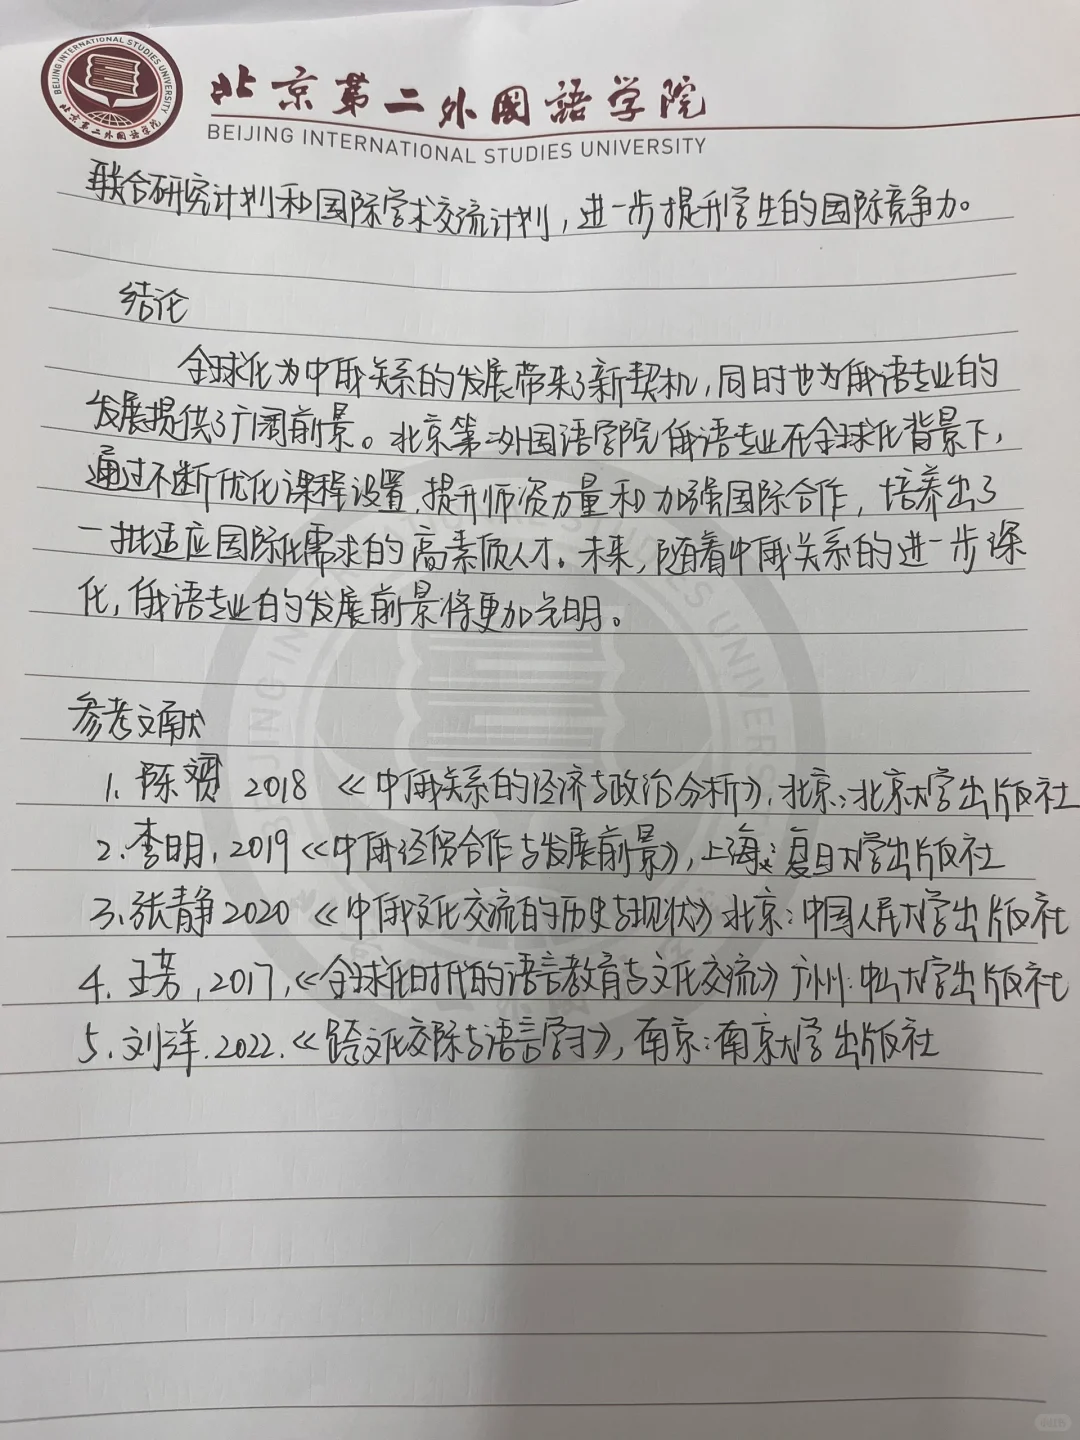 BEIJING INTERNATIONAL STUDIES UNIVERSITY
北京第二外国语学院
北京第二外國語学院
BEIJING INTERNATIONAL STUDIES UNIVERSITY
联合研究计划和国际学术交流计划，进一步提升学生的国际竞争力。
结论
全球化为中俄关系的发展带来了新契机，同时也为俄语专业的
发展提供了广阔前景。北京第二外国语学院俄语专业在全球化背景下，
通过不断优化课程设置，提升师资力量和加强国际合作，培养出了
一批适应国际化需求的高素质人才。未来，随着中俄关系的进一步深
化，俄语专业的发展前景将更加光明。
参考文献
1. 陈 2018《中俄关系的经济与政治分析》，北京：北京大学出版社
2. 李明，2019《中俄经贸合作与发展前景》，上海：复旦大学出版社
3. 张静 2020《中俄文化交流的历史与现状》北京：中国人民大学出版社
4. 王芳，2017，《全球化时代的语言教育与文化交流》广州：中山大学出版社
5. 刘洋. 2022.《跨文化交际与语言学习》，南京：南京大学出版社